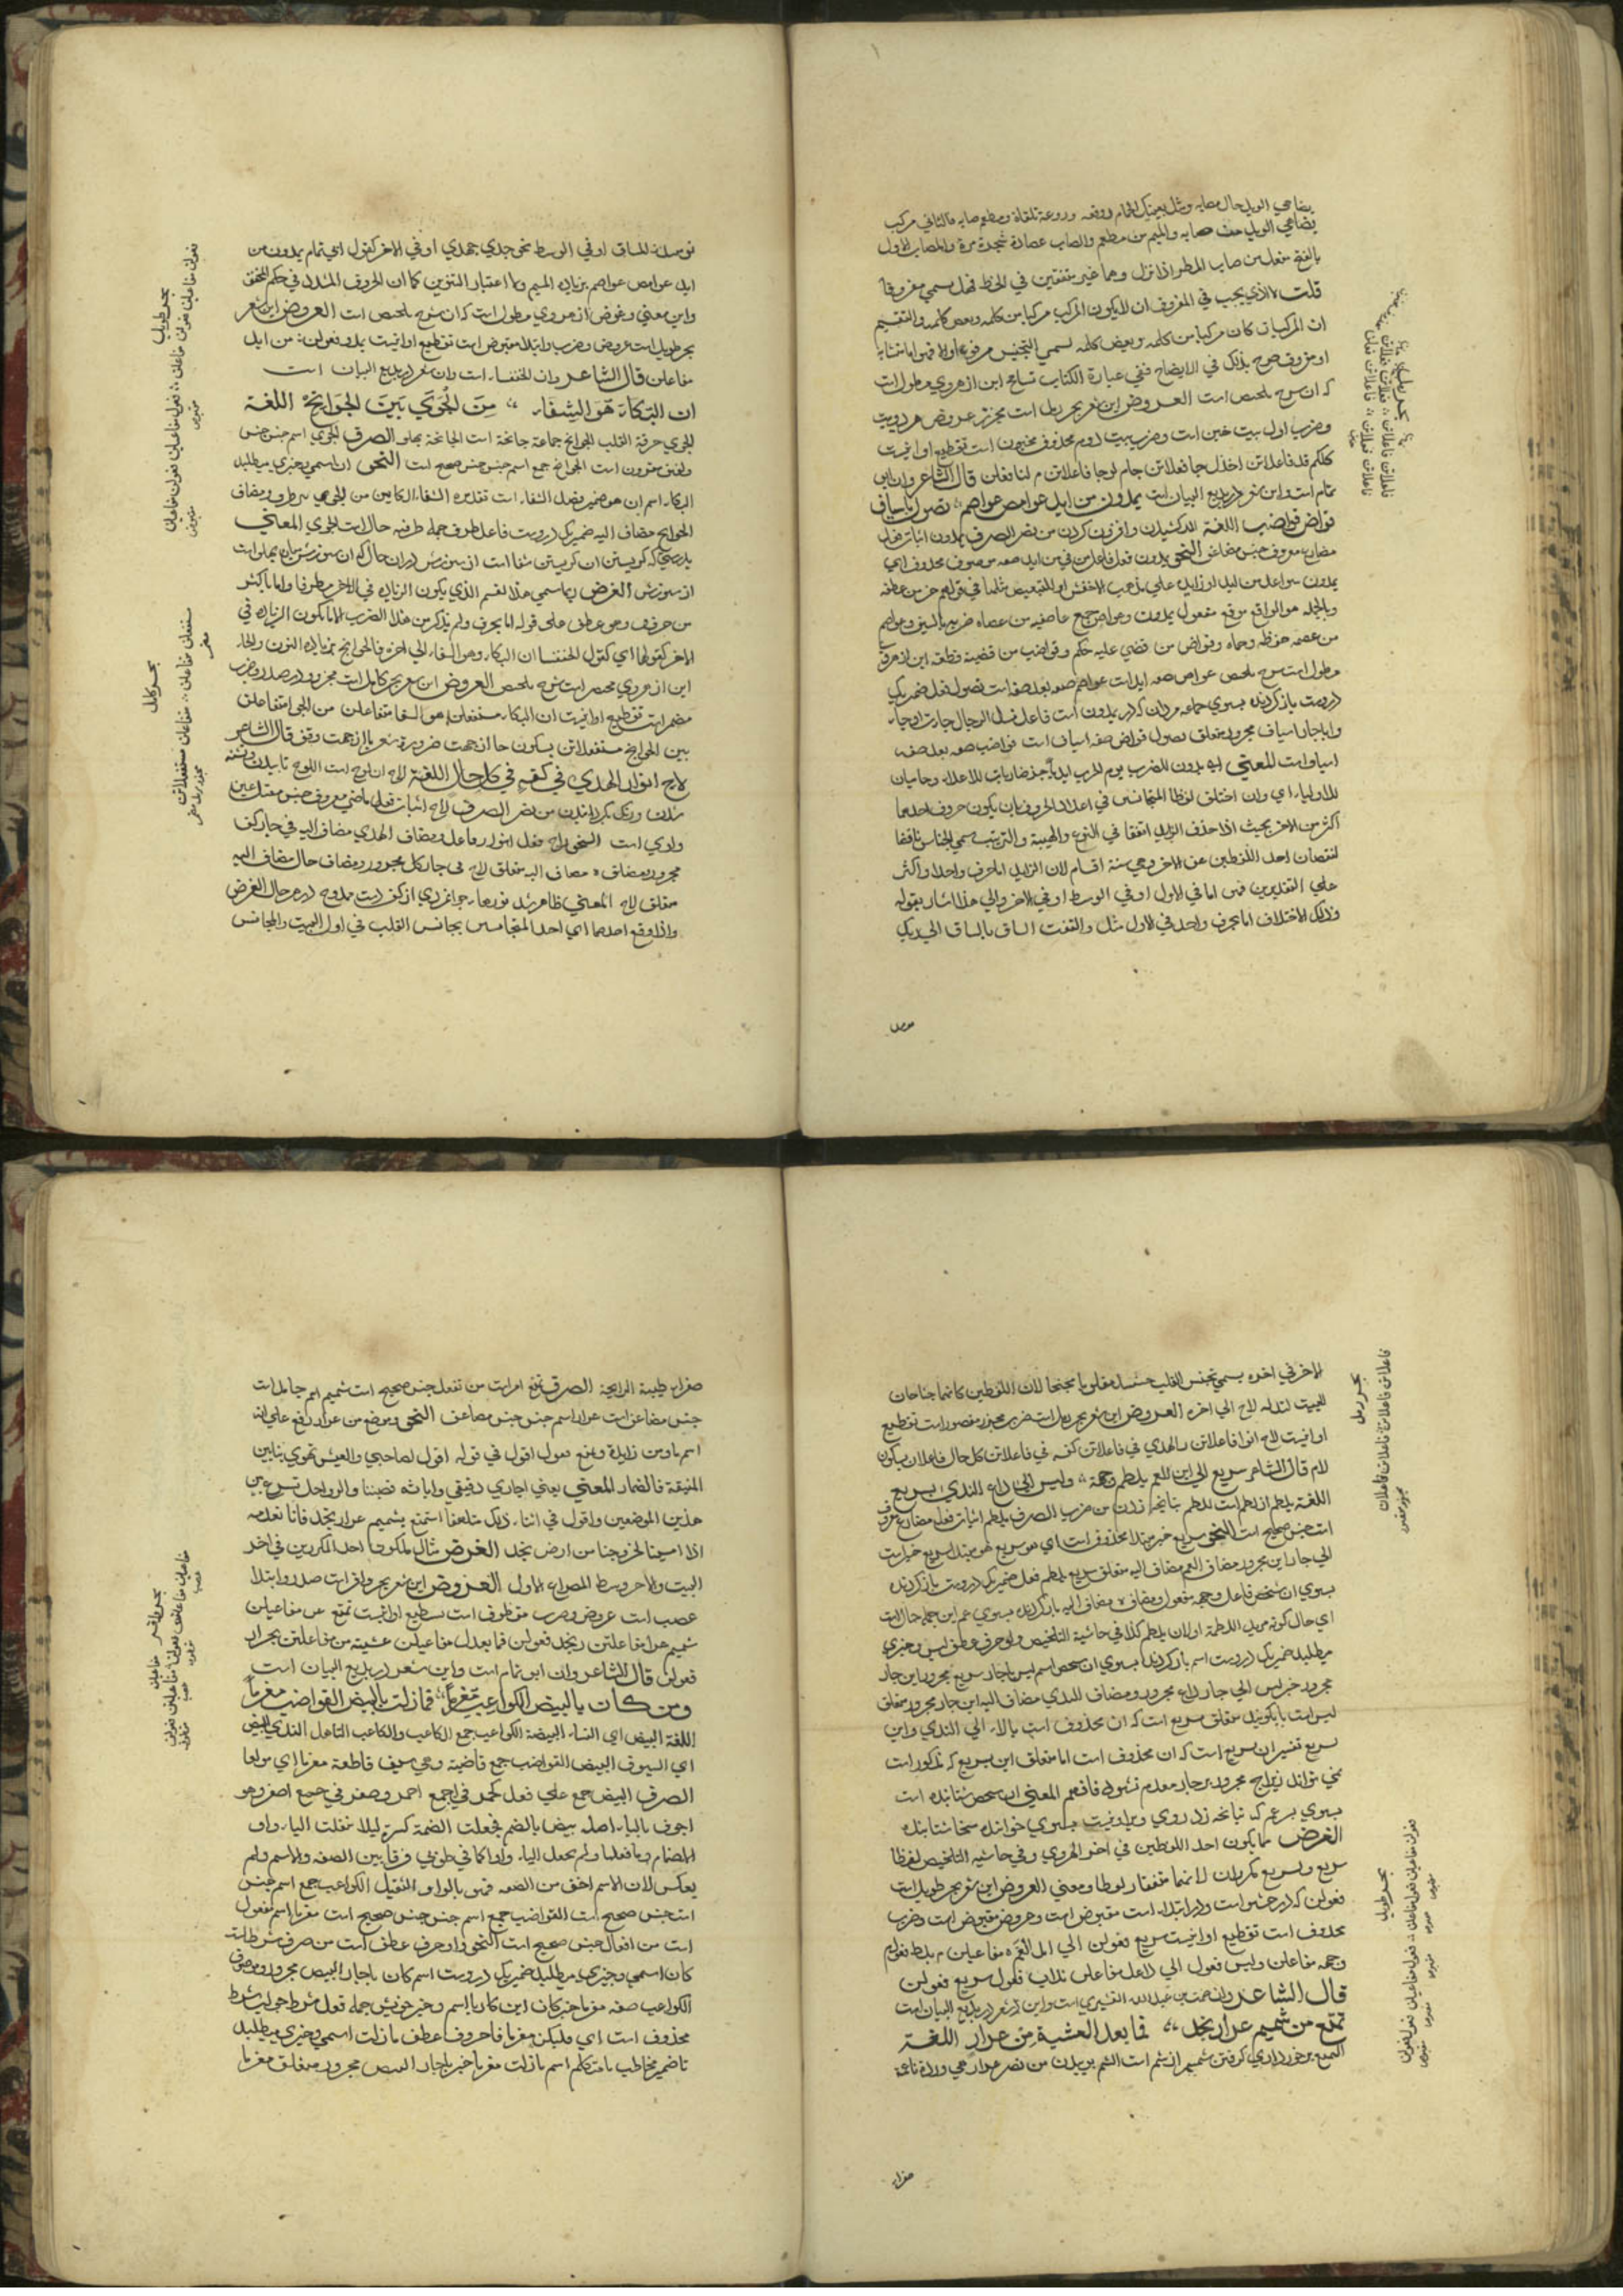 يضاهي الوبل حال مصابه ومثل بعينيك الحمام ووقعه وروعة تلقاه ومطعم صابه فالثاني مركب
يضاهي الوبل من صابه والميم من مطعم والصاب عصارة شجرة مرة والمصاب الاول
بالفتح مفعل من صاب المطر اذا نزل وهما غير متفقين في الخط فهل يسمي مفروقا
قلت لا الذي يجب في المفروق ان لا يكون المركب مركبا من كلمه وبعض كلمه والتقسيم
ان المركب ان كان مركبا من كلمه وبعض كلمه يسمي التجنيس مرفوعا والا فهو اما متشابه
او مفروق صرح بذلك في الايضاح ففي عبارة الكتاب تسامح ابن از هروي ومطول است
كه ان شرح تلخيص است العروض اين شعر بحر رمل است مجزو عروض هر دو بيت
وضرب اول بيت خبن است وضرب بيت دوم محذوف مخبون است تقطيع او اينست
كلكم قد فاعلاتن اخذل جا فعلاتن جام لوجا فاعلاتن م لنا فعلن قال الشاعر وان ابي
تمام است واين شعر در بديع البيان است يمدون من ايد عواص عواصم تصول باسياف
قواض قواضب اللغة المد كشيدن وافزون كردن من نصر الصرف يمدون اثبات فعل
مضارع معروف جنس مضاعف النحو يمدون فعل فاعل من في من ايد صفه موصوف محذوف اي
يمدون سواعد من ايد او زايده علي مذهب الاخفش او للتبعيض مثلها في قولهم هز من عطفه
وبالجمله هو الواقع موقع مفعول يمدون وعواص جمع عاصيه من عصاه ضربه بالسيف وعواصم
من عصمه حفظه وحماه وقواض من قضي عليه حكم وقواضب من قضبه قطعه اين از هروي
ومطول است شرح تلخيص عواص صفه ايد است عواصم صفه بعد صفه است تصول فعل ضمير يك
در وست باز گردنده بسوي جماعه مردان كه در يمدون است فاعل فعل الرجال جاءت او جاء
وبا جار اسياف مجرور متعلق تصول قواض صفه اسياف است قواضب صفه بعد صفه
اسياف است المعني ايه يمدون للضرب يوم الحرب ايديا ضاربات للاعداء وحاميات
للاولياء اي وان اختلف لفظا المتجانسين في اعداد الحروف بان يكون حروف احدهما
اكثر من الاخر بحيث اذا حذف الزايد اتفقا في النوع والهيئة والترتيب يسمي الجناس ناقصا
لنقصان احد اللفظين عن الاخر وهي ستة اقسام لان الزايد اما حرف واحد او اكثر
علي التقديرين فهو اما في الاول او في الوسط او في الاخر والي هذا اشار بقوله
وذلك الاختلاف اما بحرف واحد في الاول مثل والتفت الساق بالساق الي ربك
يومئذ المساق او في الوسط نحو جدي جهدي او في الاخر كقول ابي تمام يمدون من
ايد عواص عواصم بزياده الميم ولا اعتبار التنوين كما ان الحروف المشدد في حكم المخفف
واين معني وغرض از هروي ومطول است كه ان شرح تلخيص است العروض اين شعر
بحر طويل است عروض وضرب وابتدا مقبوض است تقطيع او اينست يمدو فعولن ن من ايد
مفاعلن قال الشاعر وان الخنساء است وان شعر در بديع البيان است
ان البكاء هو الشفاء من الجوي بين الجوانح اللغة
الجوي حرقة القلب الجوانح جماعة جانحة است الجانحة پهلو الصرف الجوي اسم جنس جنس
ولفيف مقرون است الجوانح جمع اسم جنس جنس صحيح است النحو ان اسمي وخبري ميطلبد
البكاء اسم ان هو ضمير فصل الشفاء است تقديره الشفاء الكاين من الجوي بين ظرف ومضاف
الجوانح مضاف اليه ضمير يك در وست فاعل ظرف جمله ظرفيه حال است الجوي المعني
بدرستي كه گريستن ان گريستن شفا است از سوزش در ان حال كه ان سوزش ميان پهلو است
از سوزش الغرض ربما سمي هذا القسم الذي يكون الزياده في الاخر مطرفا واما باكثر
من حرف وهو عطف علي قوله اما بحرف ولم يذكر من هذا الضرب الا ما يكون الزياده في
الاخر كقولها اي كقول الخنسا ان البكاء وهو الشفاء الي اخره فالجوانح بزياده النون والحاء
اين از هروي مختصر است شرح تلخيص العروض اين شعر بحر كامل است مجزو در صدر وضرب
مضمر است تقطيع او اينست ان البكاء مستفعلن هو الشفا متفاعلن من الجوي متفاعلن
بين الجوانح مستفعلاتن بسكون حا از جهت ضرورة شعر يا از جهت وقف قال الشاعر
لاح انوار الهدي في كفه في كل حال اللغة لاح از لوح است اللوح تابيدن وتشنه
شدن ورنگ بگردانيدن من نصر الصرف لاح اثبات فعل ماضي معروف جنس معتل عين
واوي است النحو لاح فعل انوار فاعل ومضاف الهدي مضاف اليه في جار كف
مجرور ومضاف ه مضاف اليه متعلق لاح في جار كل مجرور ومضاف حال مضاف اليه
متعلق لاح المعني ظاهر شد نورها جوانمردي از كف دست ممدوح در هر حال الغرض
واذا وقع احدهما اي احد المتجانسين بجانس القلب في اول البيت والمجانس
بحر طويل
بحر كامل
الاخر في اخره يسمي تجنيس القلب حينئذ مقلوبا مجنحا لان اللفظين كانهما جناحان
للبيت لقوله لاح الي اخره العروض اين شعر بحر رمل است ضرب مجزو مقصور است تقطيع
او اينست لاح انوا فاعلاتن ر الهدي في فاعلاتن كفه في فاعلاتن كل حال فاعلان بسكون
لام قال الشاعر سريع الي ابن العم يلطم وجهه وليس الي داع الندي بسريع
اللغة يلطم از لطم است اللطم تپانچه زدن من ضرب الصرف يلطم اثبات فعل مضارع معروف
است جنس صحيح است النحو سريع خبر مبتدا محذوف است اي هو سريع هو مبتدا سريع خبر است
الي جار ابن مجرور مضاف العم مضاف اليه متعلق سريع يلطم فعل ضمير يك در وست باز گردنده
بسوي ان شخص فاعل وجه مفعول ومضاف ه مضاف اليه باز گردنده بسوي عم اين جمله حال است
اي حال كونه مريد اللطمه او لان يلطم كذا في حاشية التلخيص ولو حرف عطف ليس اسمي وخبري
ميطلبد ضمير يك در وست اسم باز گردنده بسوي ان شخص اسم ليس با جار سريع مجرور اين جار
مجرور خبر ليس الي جار داع مجرور ومضاف الندي مضاف اليه اين جار مجرور متعلق
ليس است يا بگوييد متعلق سريع است كه ان محذوف است بالا الي الندي واين
بسريع تفسير ان سريع است كه ان محذوف است اما متعلق اين بسريع كه مذكور است
نمي تواند زيرا چه مجرور بر جار مقدم نشود فافهم المعني ان شخص شتابنده است
بسوي پسر عم كه تپانچه زند روي ويرا ونيست بسوي خوانده سخا شتابنده
الغرض ما يكون احد اللفظين في اخر الهروي وفي حاشيه التلخيص لفظا
سريع وبسريع مكرران لانهما متفقان لفظا ومعني العروض اين شعر بحر طويل است
فعولن كه در حشو است ودر ابتدا است مقبوض است وعروض مقبوض است وضرب
محذوف است تقطيع او اينست سريع فعولن الي ابن العم مفاعيلن م يلط فعول
وجهه مفاعلن وليس فعول الي داع مفاعلن نداب فعول سريع فعولن
قال الشاعر وان صمت بن عبد الله القشيري است واين شعر در بديع البيان است
تمتع من شميم عرار نجد فما بعد العشية من عرار اللغة
التمتع برخورداري گرفتن شميم از شم است الشم بوييدن من نصر عرار هي وردة ناعمة
صفراء طيبة الرايحة الصرف تمتع امر است من تفعل جنس صحيح است شميم اسم جامد است
جنس مضاعف است عرار اسم جنس جنس مضاعف النحو وموضع من عرار رفع علي انه
اسم ما ومن زايدة وتمتع مقول اقول في قوله اقول لصاحبي والعيس تهوي بنا بين
المنيفة فالضمار المعني يعني اجاري رفيقي واباثه قصتنا والرواحل تسرع بين
هذين الموضعين واقول في اثناء ذلك متلهفا استمتع بشميم عرار نجد فانا نعدمه
اذا امسينا لخروجنا من ارض نجد الغرض مثال لما يكون احد المكررين في اخر
البيت والاخر وسط المصراع الاول العروض اين شعر بحر وافر است صدر وابتدا
عصب است عروض وضرب مقطوف است تقطيع او اينست تمتع من مفاعيلن
شميم عرا مفاعلتن ر نجد فعولن فما بعد ال مفاعيلن عشية من مفاعلتن عرار
فعولن قال الشاعر وان ابو تمام است واين شعر در بديع البيان است
ومن كان بالبيض الكواعب مغرما فما زلت بالبيض القواضب مغرما
اللغة البيض اي النساء البيضة الكواعب جمع الكاعب والكاعب الناهد الثدي البيض
اي السيوف البيض القواضب جمع قاضبة وهي سيف قاطعة مغرما اي مولعا
الصرف البيض جمع علي فعل كحمر في جمع احمر وصفر في جمع اصفر وهو
اجوف بالياء اصله بيض بالضم فجعلت الضمة كسرة ليلا تقلب الياء واو
لانضمام ما قبلها ولم يجعل الياء واوا كما في طوبي فرقا بين الصفه والاسم ولم
يعكس لان الاسم اخف من الصفه فهو بالواو الثقيل الكواعب جمع اسم جنس
است جنس صحيح است القواضب جمع اسم جنس جنس صحيح است مغرما اسم مفعول
است من افعال جنس صحيح است النحو واو حرف عطف است من حرف شرط است
كان اسمي وخبري ميطلبد ضمير يك در وست اسم كان با جار البيض مجرور وموصوف
الكواعب صفه مغرما خبر كان اين كان با اسم وخبر خويش جمله فعل شرط جواب شرط
محذوف است اي فليكن مغرما فا حرف عطف ما زلت اسمي وخبري ميطلبد
تا ضمير مخاطب يا متكلم اسم ما زلت مغرما خبر با جار البيض مجرور متعلق مغرما
بحر رمل
بحر طويل
بحر وافر